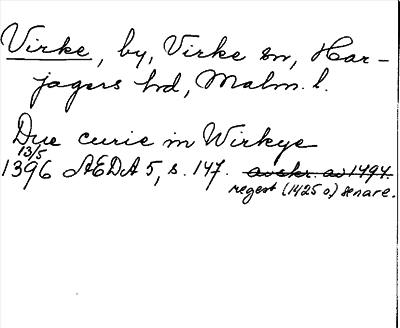 Virke, by, Virke sn, Har-
jagers hd, Malm. l.
Due curie in Wirkye
13/5
1396 AEDA 5, s. 147. avskr. av 1494.
regest (1425 o) senare.